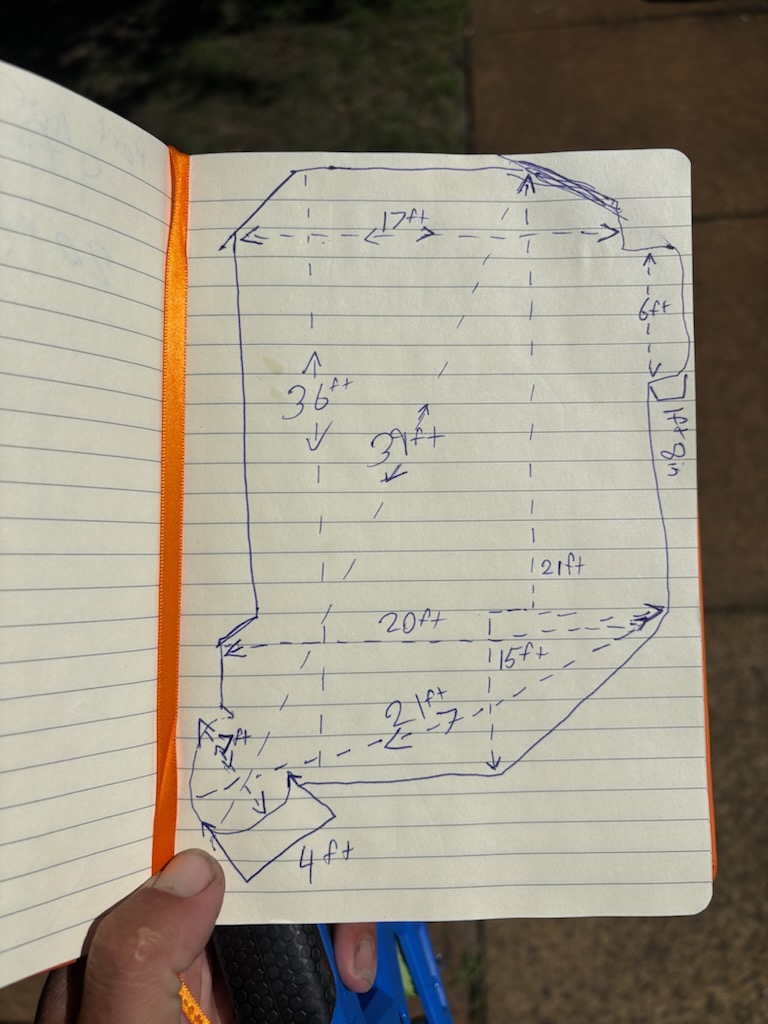 17ft
6ft
36ft
39ft
1ft 8in
21ft
20ft
15ft
21ft 7
4ft